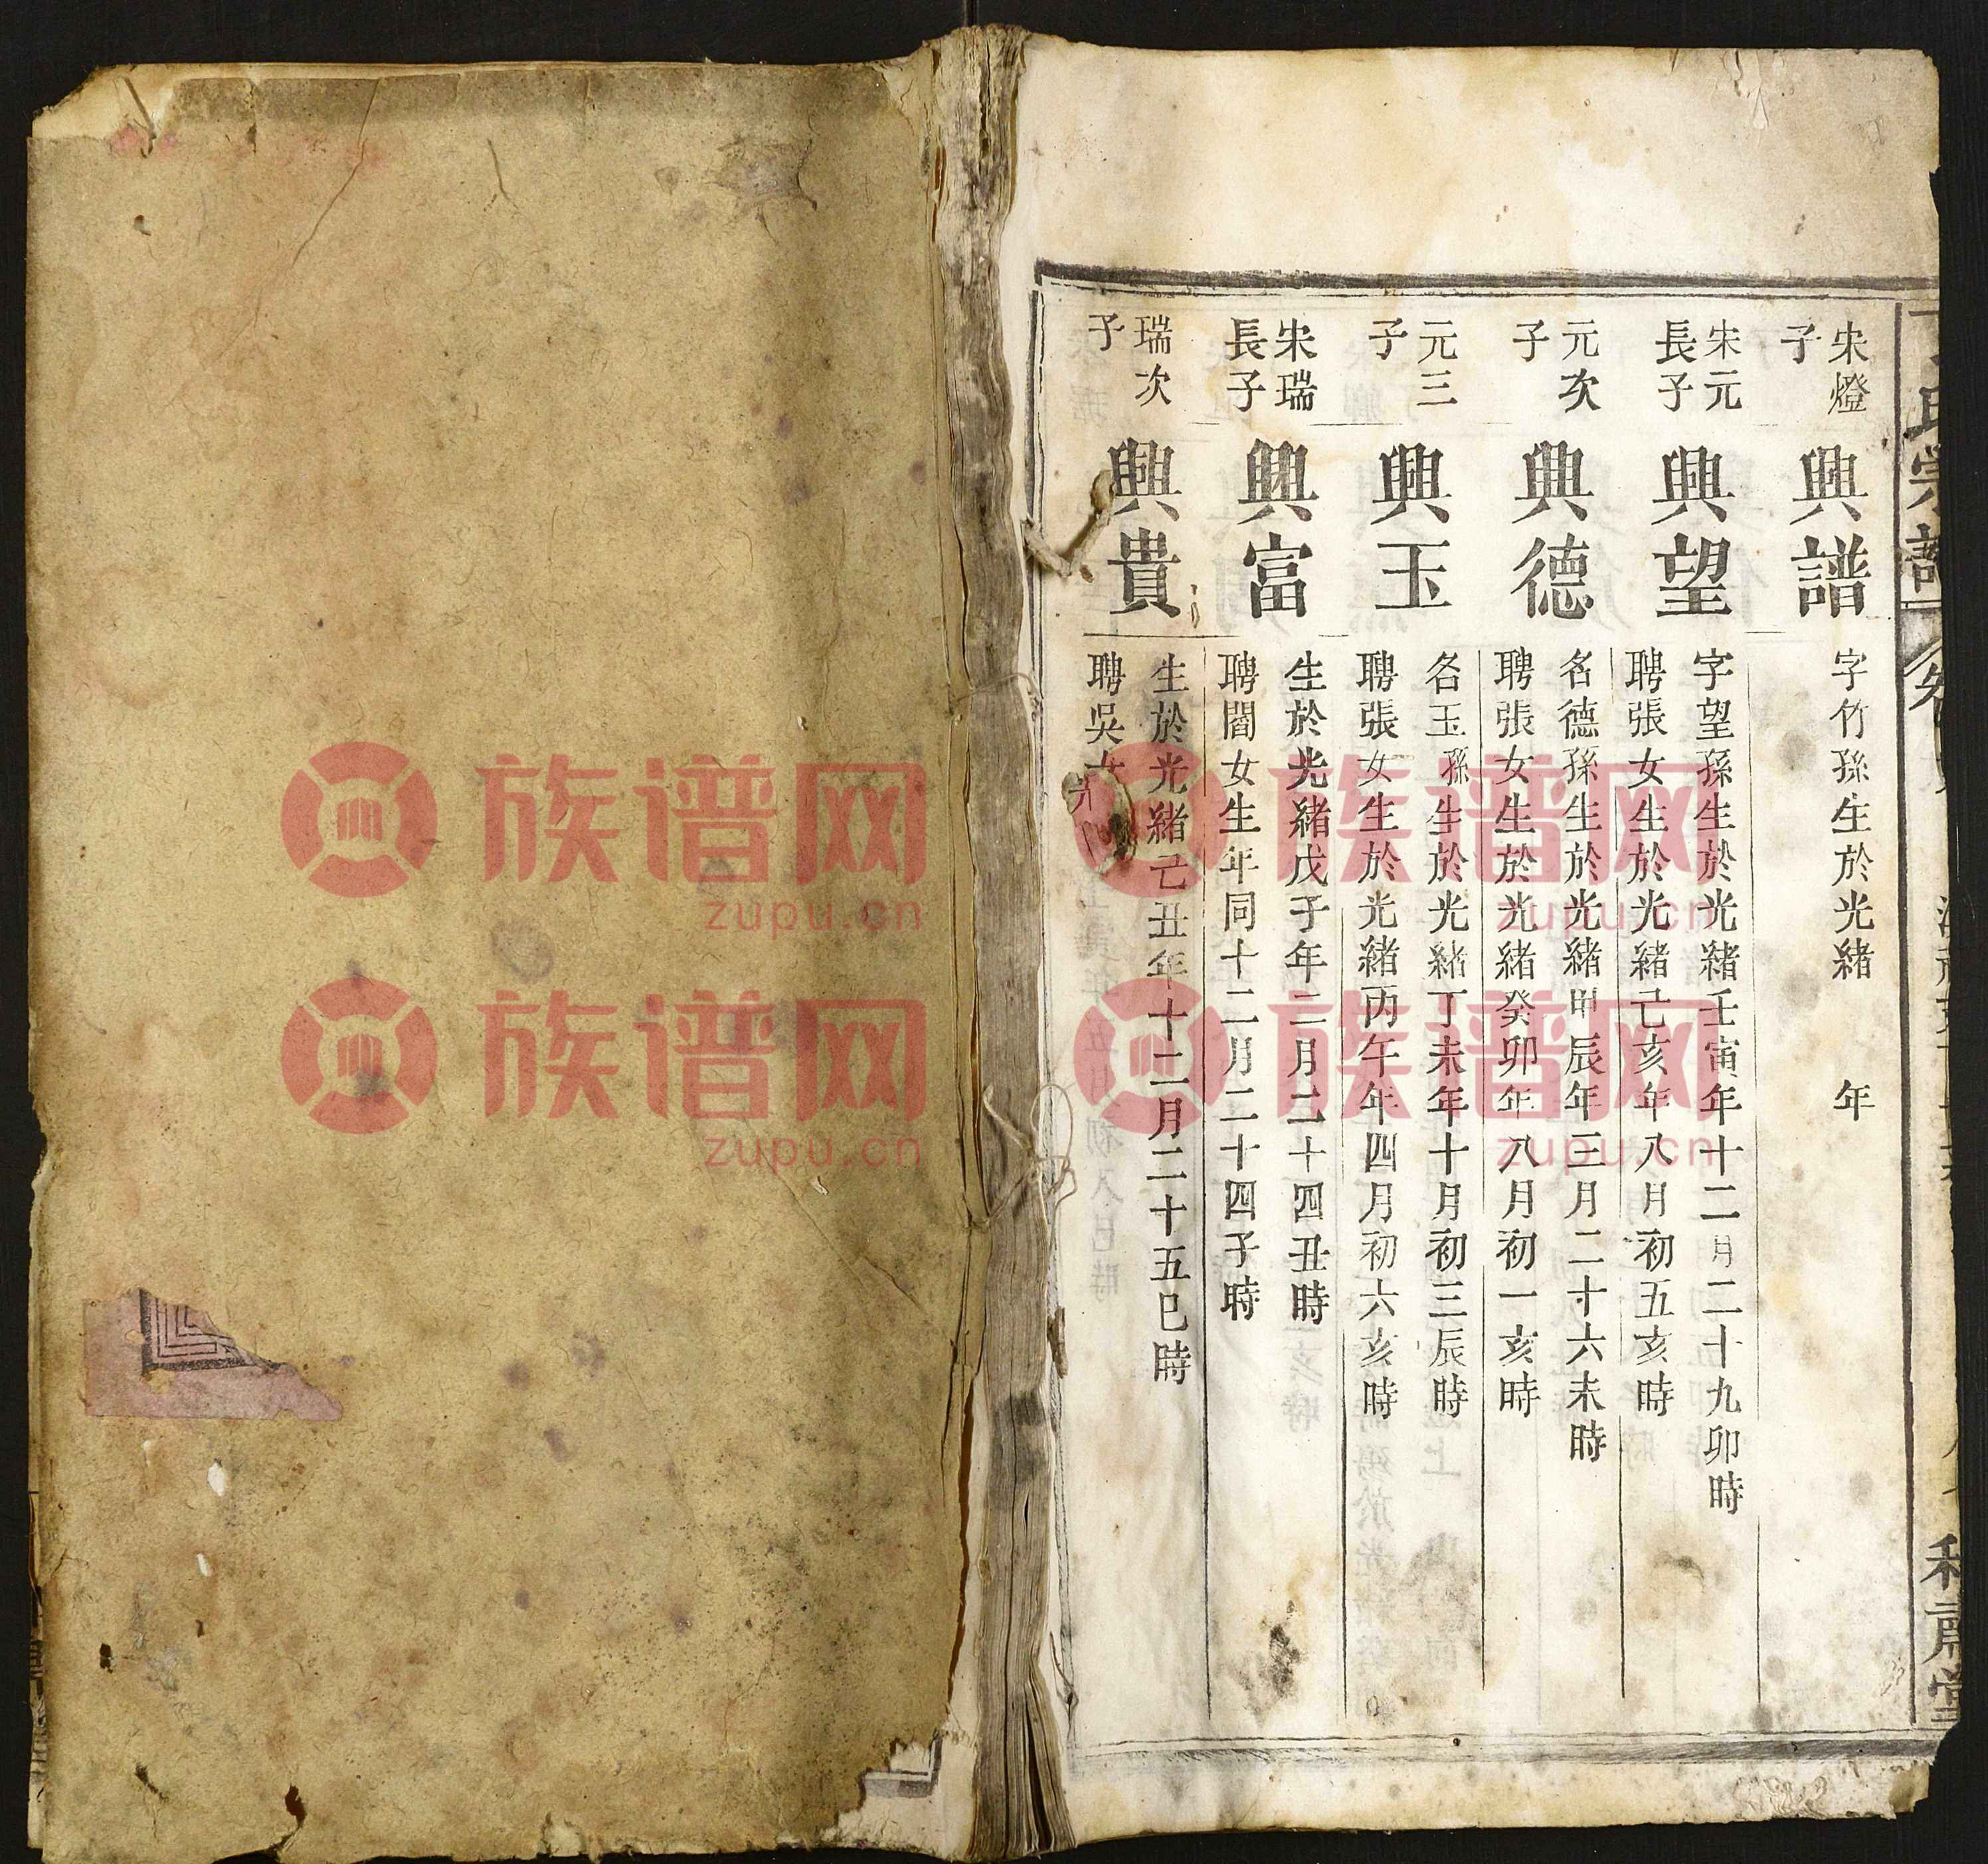 氏宗譜
宋燈
子
興譜
字竹孫生於光緒　年
宋元
長子
興望
字望孫生於光緒壬寅年十二月二十九卯時
聘張女生於光緒己亥年八月初五亥時
元次
子
興德
名德孫生於光緒甲辰年三月二十六未時
聘張女生於光緒癸卯年八月初一亥時
元三
子
興玉
名玉孫生於光緒丁未年十月初三辰時
聘張女生於光緒丙午年四月初六亥時
宋瑞
長子
興富
生於光緒戊子年二月二十四丑時
聘閻女生年同十二月二十四子時
瑞次
子
興貴
生於光緒己丑年十二月二十五巳時
聘吳女
族谱网
zupu.cn
族谱网
zupu.cn
族谱网
zupu.cn
族谱网
zupu.cn